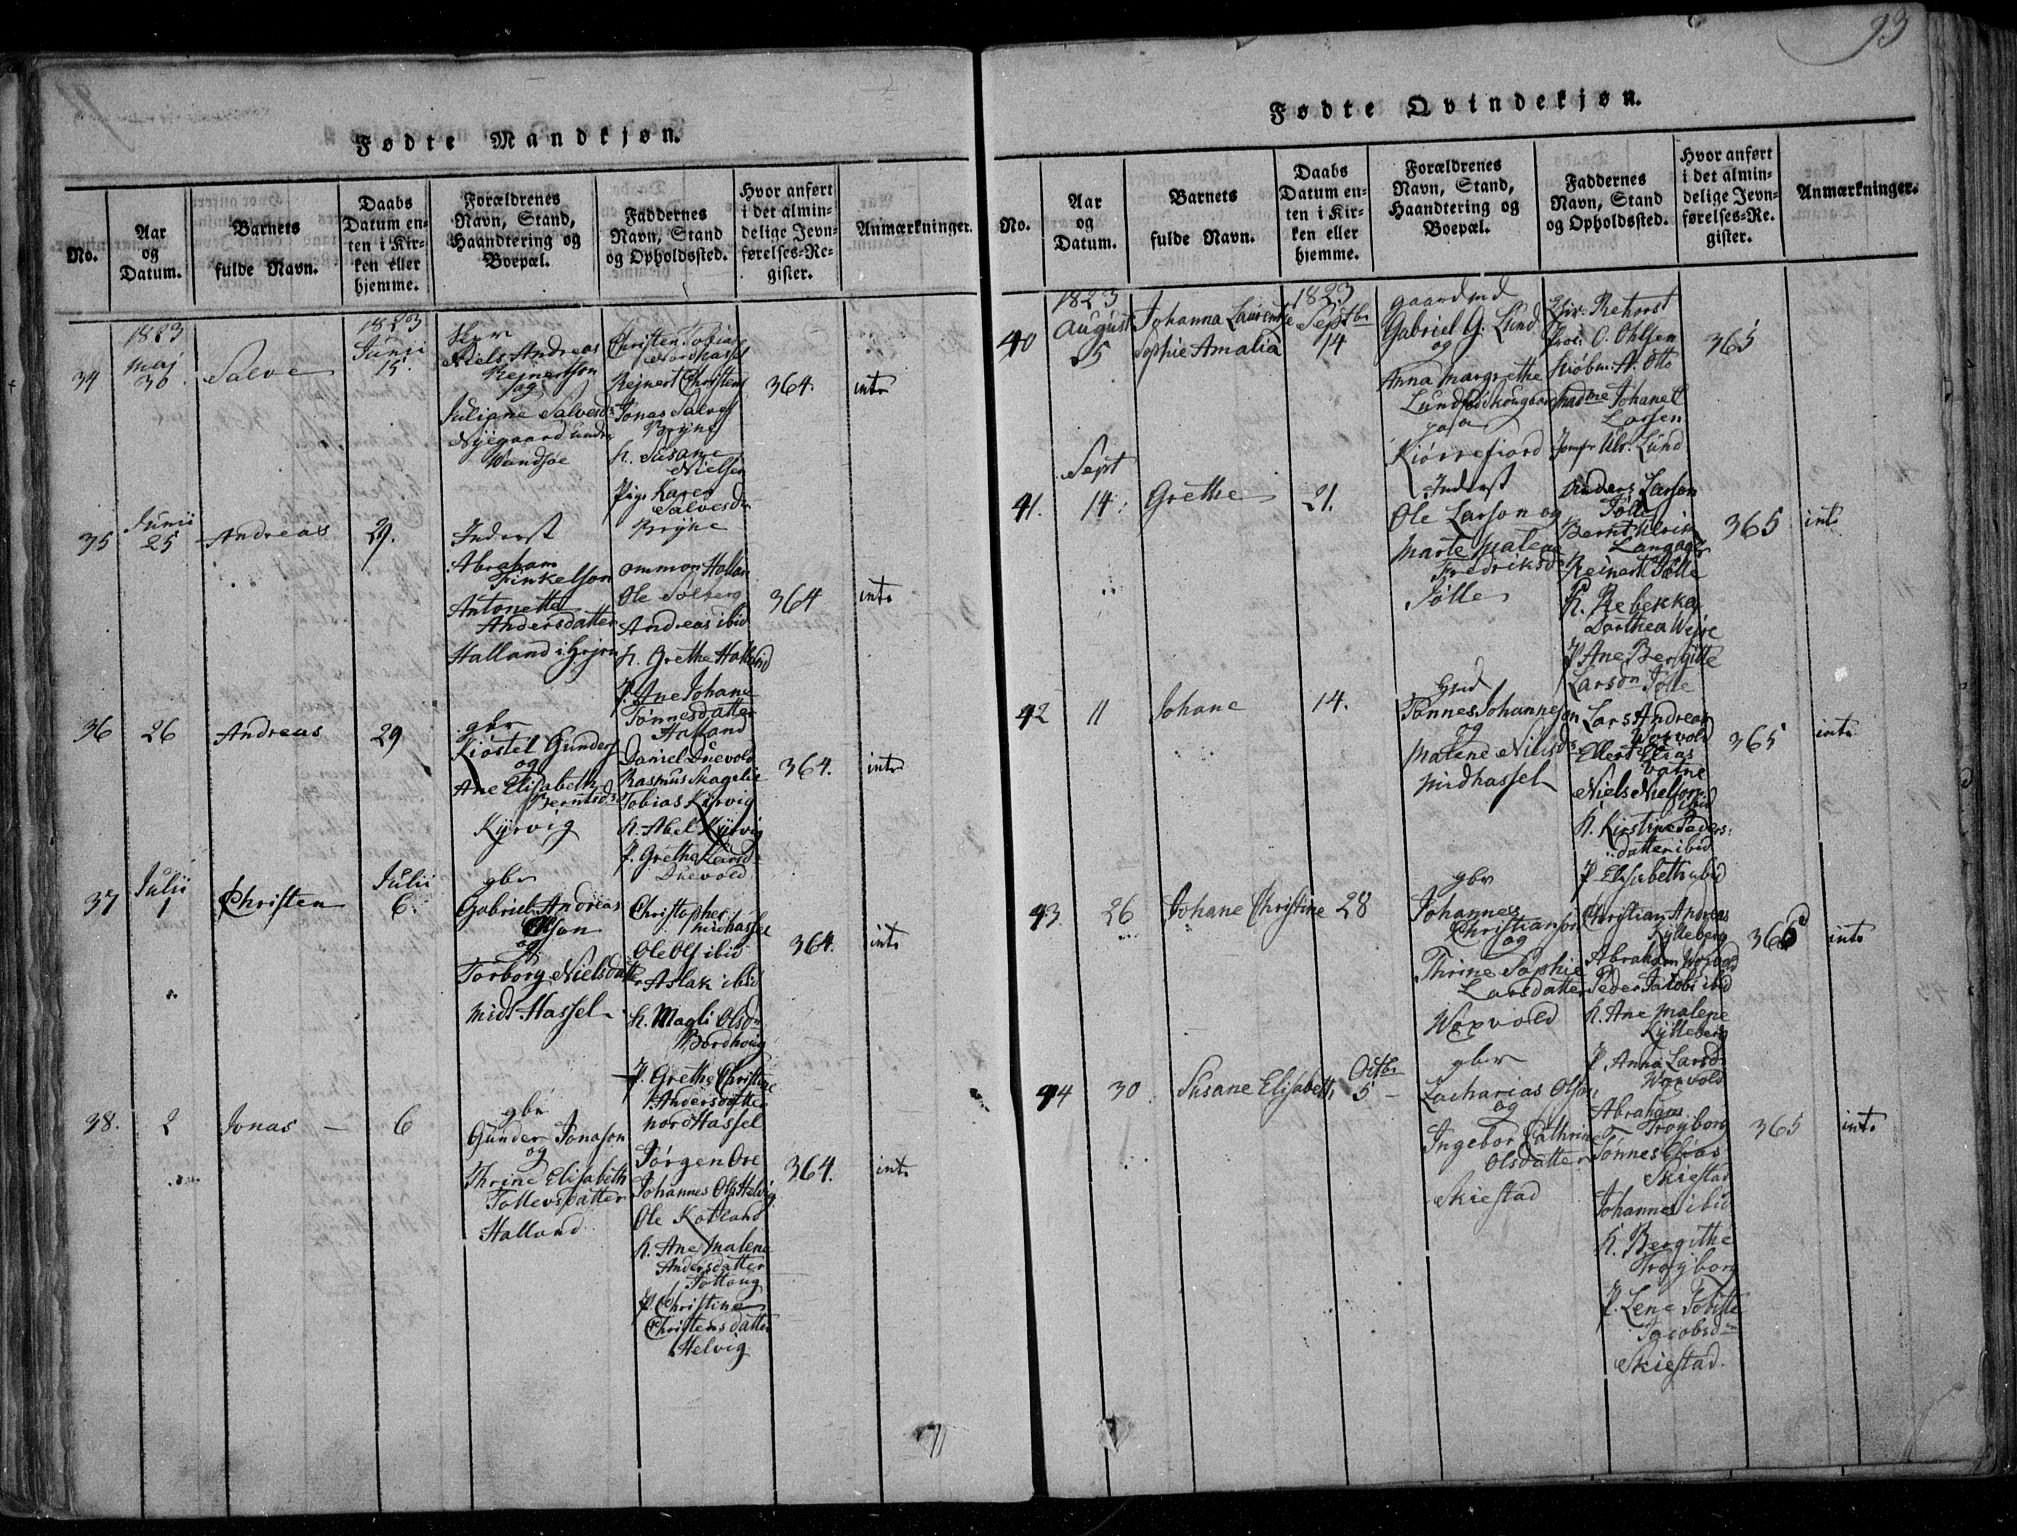 93
Fødte Mandkjøn.
No.
Aar
og
Datum.
Barnets
fulde Navn.
Daabs
Datum en-
ten i Kir-
ken eller
hjemme.
Forældrenes
Navn, Stand,
Haandtering og
Boepæl.
Faddernes
Navn, Stand
og Opholdssted.
Hvor anført
i det almin-
delige Jevn-
førelses-Re-
gister.
Anmærkninger.
34
1823
Maj
30
Salve
1823
Junii
15.
Niels Andreas
Rejnertson
og
Juliane Salvesd:
Nyegaard
Christen Tobias
Nordhassel
Rejnert Christens
Jonas Salves
Bryne
K. Susane
Nielsen
Pige Karen
Salvesd:
Bryne
364.
int:
35
Junii
25
Andreas
29.
Inderst
Abraham
Finkelson
Antonette
Andersdatter
Halland i
Ommon Hollan
Ole Solberg
Andreas ibid
K. Grethe Halland
P. Ane Johane
Tønnesdatter
Halland
364
int:
36
26
Andreas
29
gbr
Kiøstel Gunders
og
Ane Elisabeth
Berntsd:
Kyrvig
Daniel Duevold
Rasmus Skagelie
Tobias Kyrvig
K. Abel Kyrvig
P. Grethe Larsd:
Duevold
364.
int:
37
Julii
1
Christen
Julii
6.
gbr
Gabriel Andreas
Olson
og
Torborg Nielsdatter
Midt Hassel
Christopher
Midhassel
Ole Ols ibid
Aslak ibid
K. Magli Olsdn
Bordhoug
P. Grethe Christine
Andersdatter
Nordhassel
364.
int:
38.
2
Jonas
6
gbr
Gunder Jonason
og
Thrine Elisabeth
Tollevsdatter
Halland
Jørgen Ore
Johannes Ols Helvig
Ole Kotland
K. Ane Malene
Andersdatter
Tottoug
P. Christine
Christensdatter
Helvig
364.
int:
Fødte Qvindekjøn.
No.
Aar
og
Datum.
Barnets
fulde Navn.
Daabs
Datum en-
ten i Kir-
ken eller
hjemme.
Forældrenes
Navn, Stand,
Haandtering og
Boepæl.
Faddernes
Navn, Stand
og Opholdssted.
Hvor anført
i det almin-
delige Jevn-
førelses-Re-
gister.
Anmærkninger.
40
1823
August
25
Johanna Laurentze
Sophie Amalia
1823
Septbr
14
gaardmd
Gabriel G. Lund
og
Anna Margrethe
Lund
paa
Kiørrefiord
Chir. Rehorst
Proc. O. Ohlsen
Kiøbm. N. Otto
Madme Johane C
Larsen
Jomfr Ulr. Lund
365
41.
Sept
14.
Grethe
21.
Inderst
Ole Larson og
Marte Malene
Fredriksd:
Jølle
Anders Larson
Jølle
Bernt Ulrich
Langager
Reinert Jølle
K. Rebekka
Dorthea Weise
P. Ane Bergitte
Larsdn Jølle
365
int:
42
11
Johane
14.
Gmd
Tønnes Johanneson
og
Malene Nielsd:
Midhassel
Lars Andreas
Woxvold
Ellert Elias
Vatne
Niels Nielson
ibid
K. Kirstine Peders:
datter ibid
P. Elisabeth ibid
365
int:
43.
26
Johane Christine
28
gbr
Johannes
Christianson
og
Thrine Sophie
Larsdatter
Woxvold
Christian Andreas
Kylleberg
Abraham Woxvold
Peder Jakobs ibid
K. Ane Malene
Kylleberg
P. Anna Larsd:
Woxvold
365
int:
44
30
Susane Elisabeth
Octbr
5
gbr
Zacharias Olson
og
Ingebor Cathrine
Olsdatter
Skiestad
Abraham
Trøyborg
Tønnes Elias
Skiestad
Johannes ibid
K. Bergithe
Trøyborg
P. Lene Tobitte
Jacobsdn
Skiestad.
365
int: